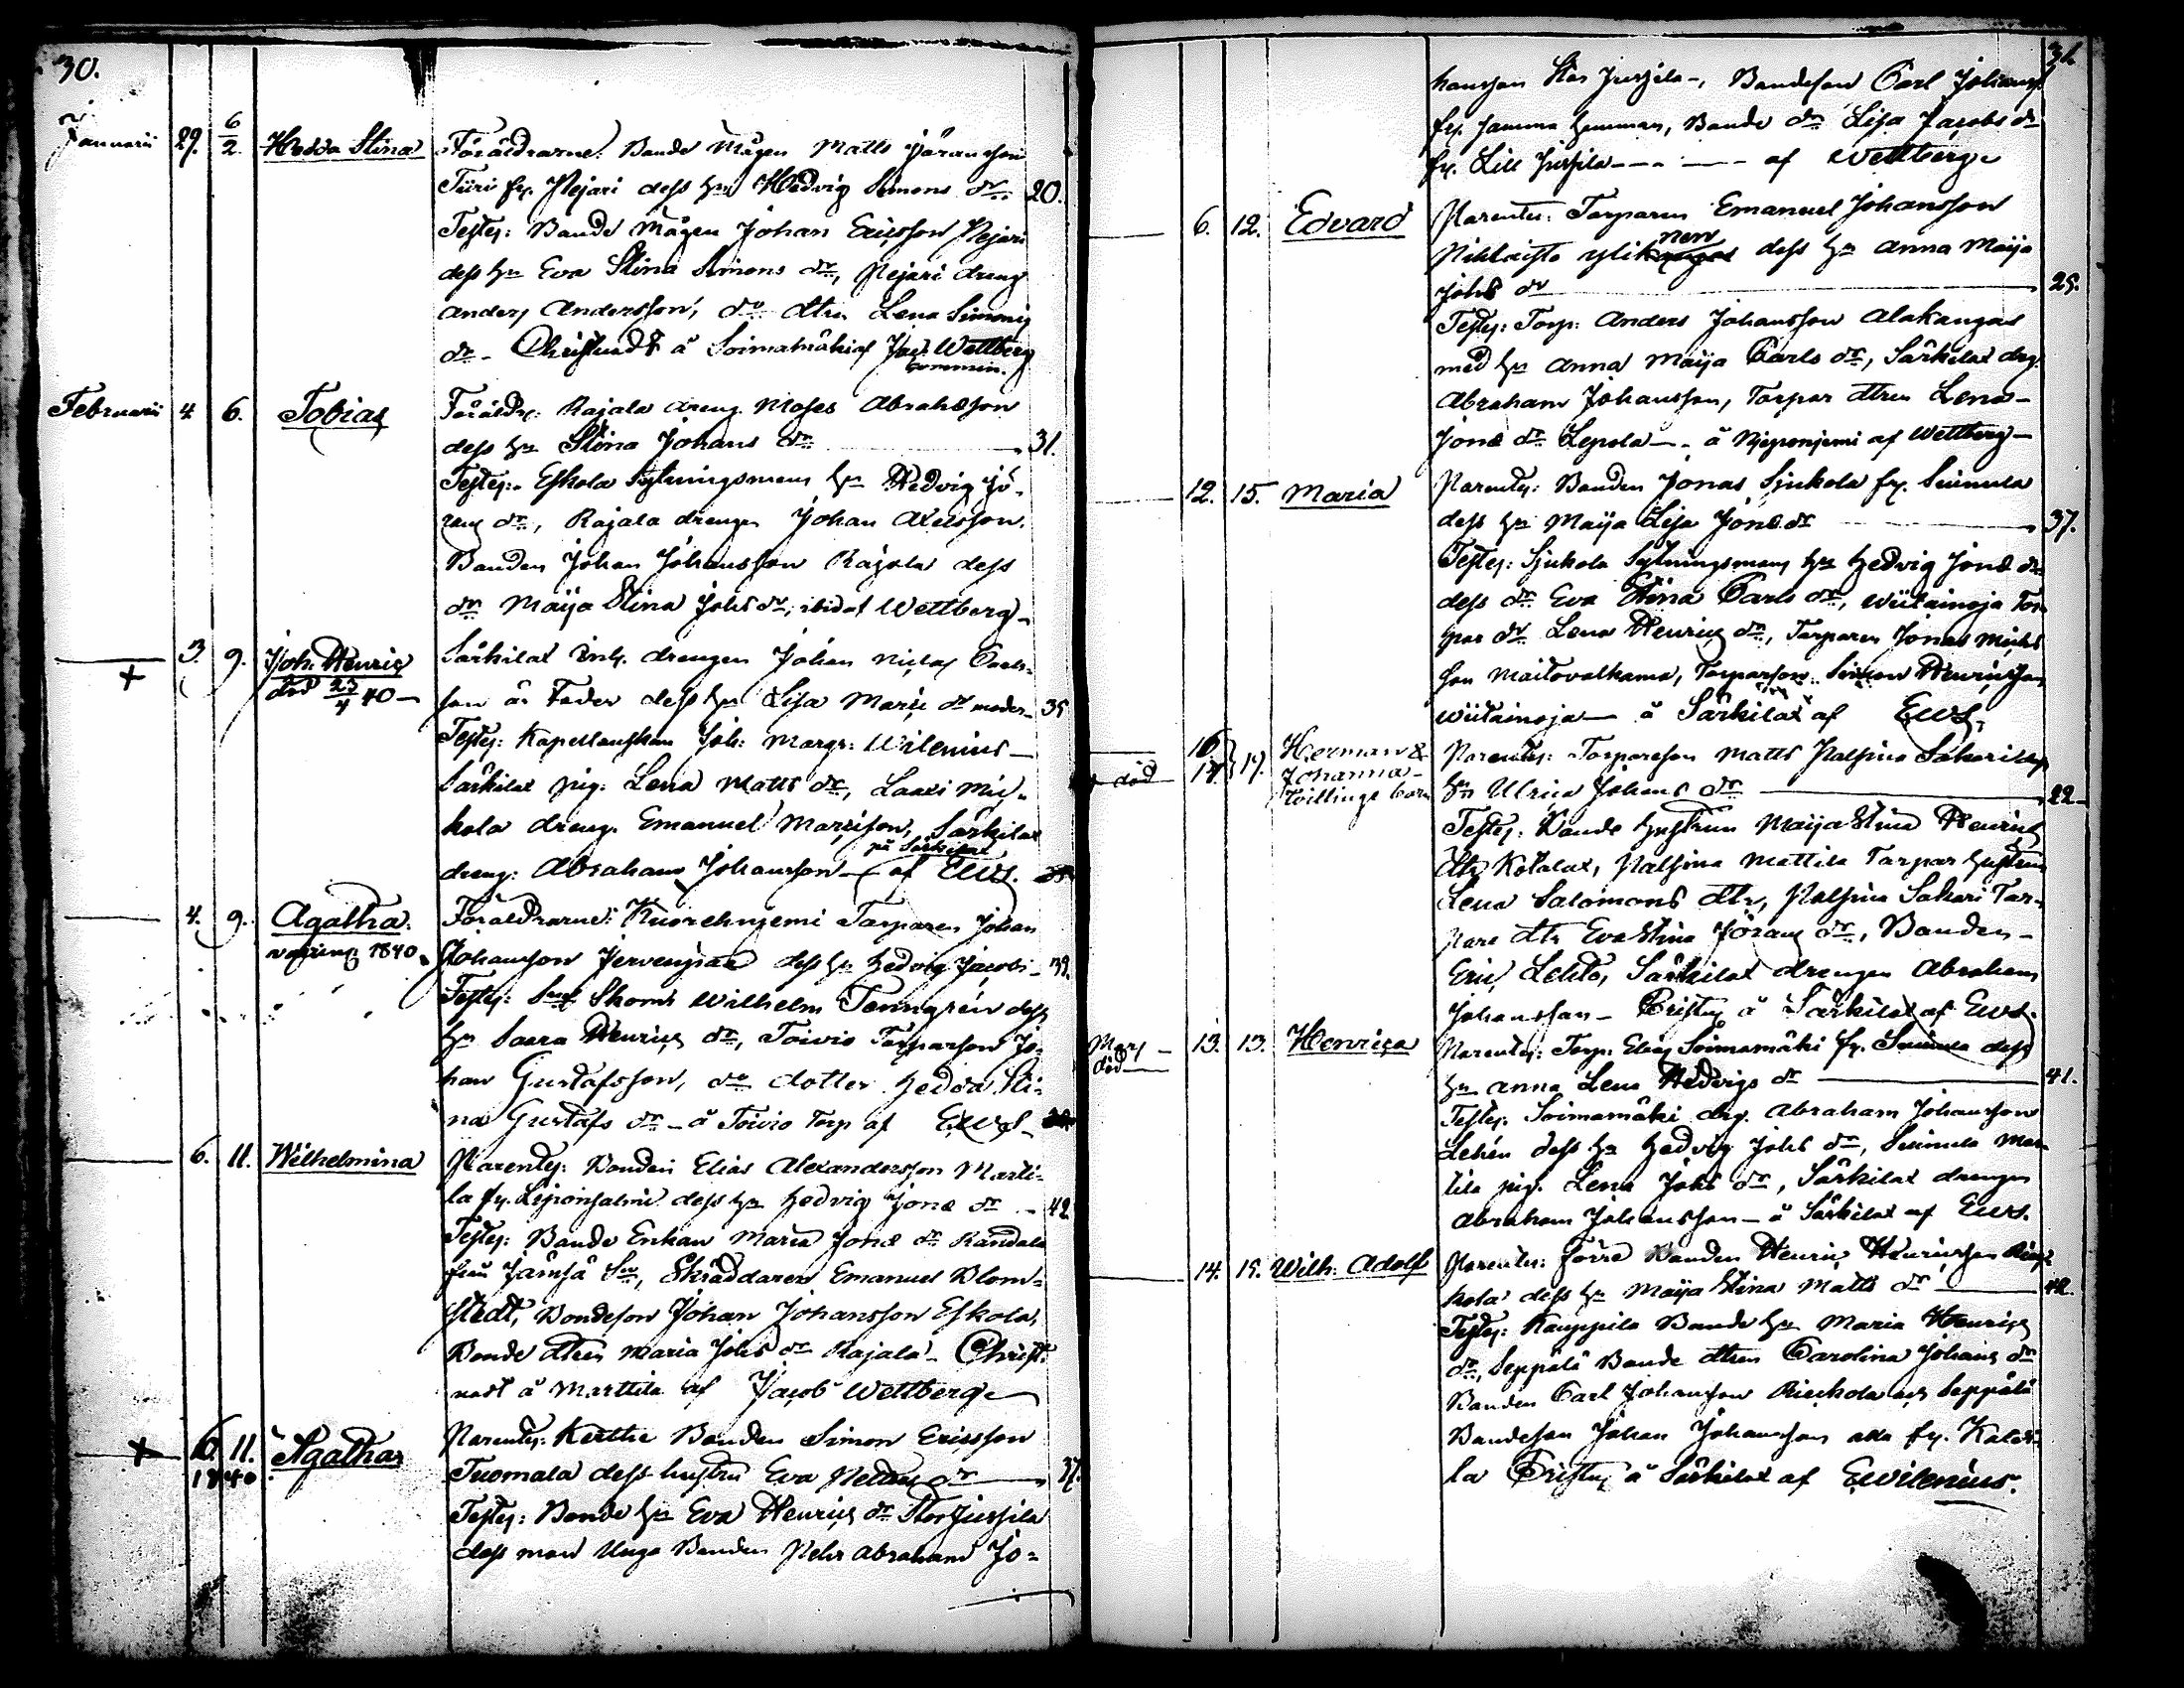 30.
Januarii 29. 6/2 Hedda Stina Föräldrarne: Bonde Mågen Matts Göransson
Tiiri fr. Nejari dess hu Hedvig Simons dr 20.
Testes: Bonde Mågen Johan Ericsson Nejari
dess hu Eva Stina Simons dr, Nejari dreng
Anders Andersson, do dtrn Lena Simons
dr - Christnadt å Soimamäki af Jac: Wettberg
Februarii 4 6. Tobias Föräldr: Rajala dreng Moses Abrahsson
dess hu Stina Johans dr 31.
Testes: Eskola Sytningsmans hu Hedvig Jö-
rans dr, Rajala drengen Johan Axelsson
Bonden Johan Johansson Rajala dess
dr Maija Stina Johs dr, ibid af Wettberg
+ 3. 9. Joh. Henric Särkilax Inh. drengen Johan Niclas Carls-
död 23/4 40 son är Fader dess hu Lisa Maria dr moder 35
Testes: Kapellanskan Joh: Margr: Wilenius
Särkilax pig. Lena Matts dr, Laaxi Mic-
kola dreng. Emanuel Mariæson, Särkilax
på Särkilax
dreng: Abraham Johansson af EWS.
4. 9. Agatha. Föräldrarne: Kuorehnjemi Torparen Johan
1840 Johansson Jervenpää dess hu Hedvig Jacobs 39.
Testes: Wilhelm Tenngrén dess
hu Saara Henrics dr, Toivio Torparson Jo-
han Gustafsson, do dotter Hedda Sti-
na Gustafs dr - å Toivio Torp af EWS
6. 11. Wilhelmina Parentes: Bonden Elias Alexandersson Martti-
la fr. Leponsalmi dess hu Hedvig Jonæ dr 42
Testes: Bonde Enkan Maria Jonæ dr Randala
från Jämsä Sn, Skräddaren Emanuel Blom-
stedt, Bondeson Johan Johansson Eskola,
Bonde dtren Maria Johs dr Rajala - Christ-
nadt å Marttila af Jacob Wettberg
+ 6 11. Agatha Parentes: Kertte Bonden Simon Ericsson
1840 Tuomala dess hustru Eva dr 37.
Testes: Bonde hu Eva Henrics dr Stor Jussila
dess man Unga Bonden Pehr Abraham Jo-
31.
hansson Stor Jussila -, Bondeson Carl Johanss
fr. samma hemman, Bonde dr Lisa Jacobs dr
fr. Lill Jussila - af Wettberg
6. 12. Edvard Parentes: Torparen Emanuel Johansson
nen
Pihlaisto ylikangas dess hu Anna Maija
Johs dr 25.
Testes: Torp: Anders Johansson Alakangas
med hu Anna Maija Carls dr, Särkilax drg.
Abraham Johansson, Torpar dtren Lena
Jonæ dr Lepola - å af Wettberg
12. 15. Maria Parentes: Bonden Jonas Sjukola fr. Suinula
dess hu Maija Lisa Jonæ dr 37.
Testes: Sjukola Sytningsmans hu Hedvig Jonæ dr
dess dr Eva Stina Carls dr, Wiitainoja Tor-
par dr Lena Henrics dr, Torparen Jonas Michs
son Maitovalkama, Torparson Simon Henricsson
Wiitainoja - å Särkilax af EWS.
död 16 17 } 19. Herman & Johanna Tvillinge barn Parentes: Torpareson Matts Palsina Sakarias
hu Ulrica Johans dr 22
Testes: Bonde hustrun Maija Stina Henrics
dtr Kotalax, Palsina Mattila Torpar hustrun
Lena Salomons dtr, Palsina Sakari Tor-
pare dtr Eva Stina Jörans dr, Bonden
Eric Lehto, Särkilax drengen Abraham
Johansson - Cristn å Särkilax af EWS.
Mars 13. 13. Henrica Parentes: Torp. Elias Soimamäki fr. Suinula dess
död hu Anna Lena Hedvigs dr 41.
Testes. Soimamäki drg. Abraham Johansson
Lehén dess hu Hedvig Johs dr, Suinula Mar-
tila pig. Lena Johs dr, Särkilax drengen
Abraham Johansson - å Särkilax af EWS.
14. 15. Wilh. Adolf Parentes: förre Bonden Henric Henricsson
kola dess hu Maija Stina Matts dr 42.
Testes: Kauppila Bonde hu Maria Henrics
dr, Seppälä Bonde dtren Carolina Johans dr
Bonden Carl Johansson och Seppälä
Bondeson Johan Johansson alla fr.
la Cristn å Särkilax af EWilenius.